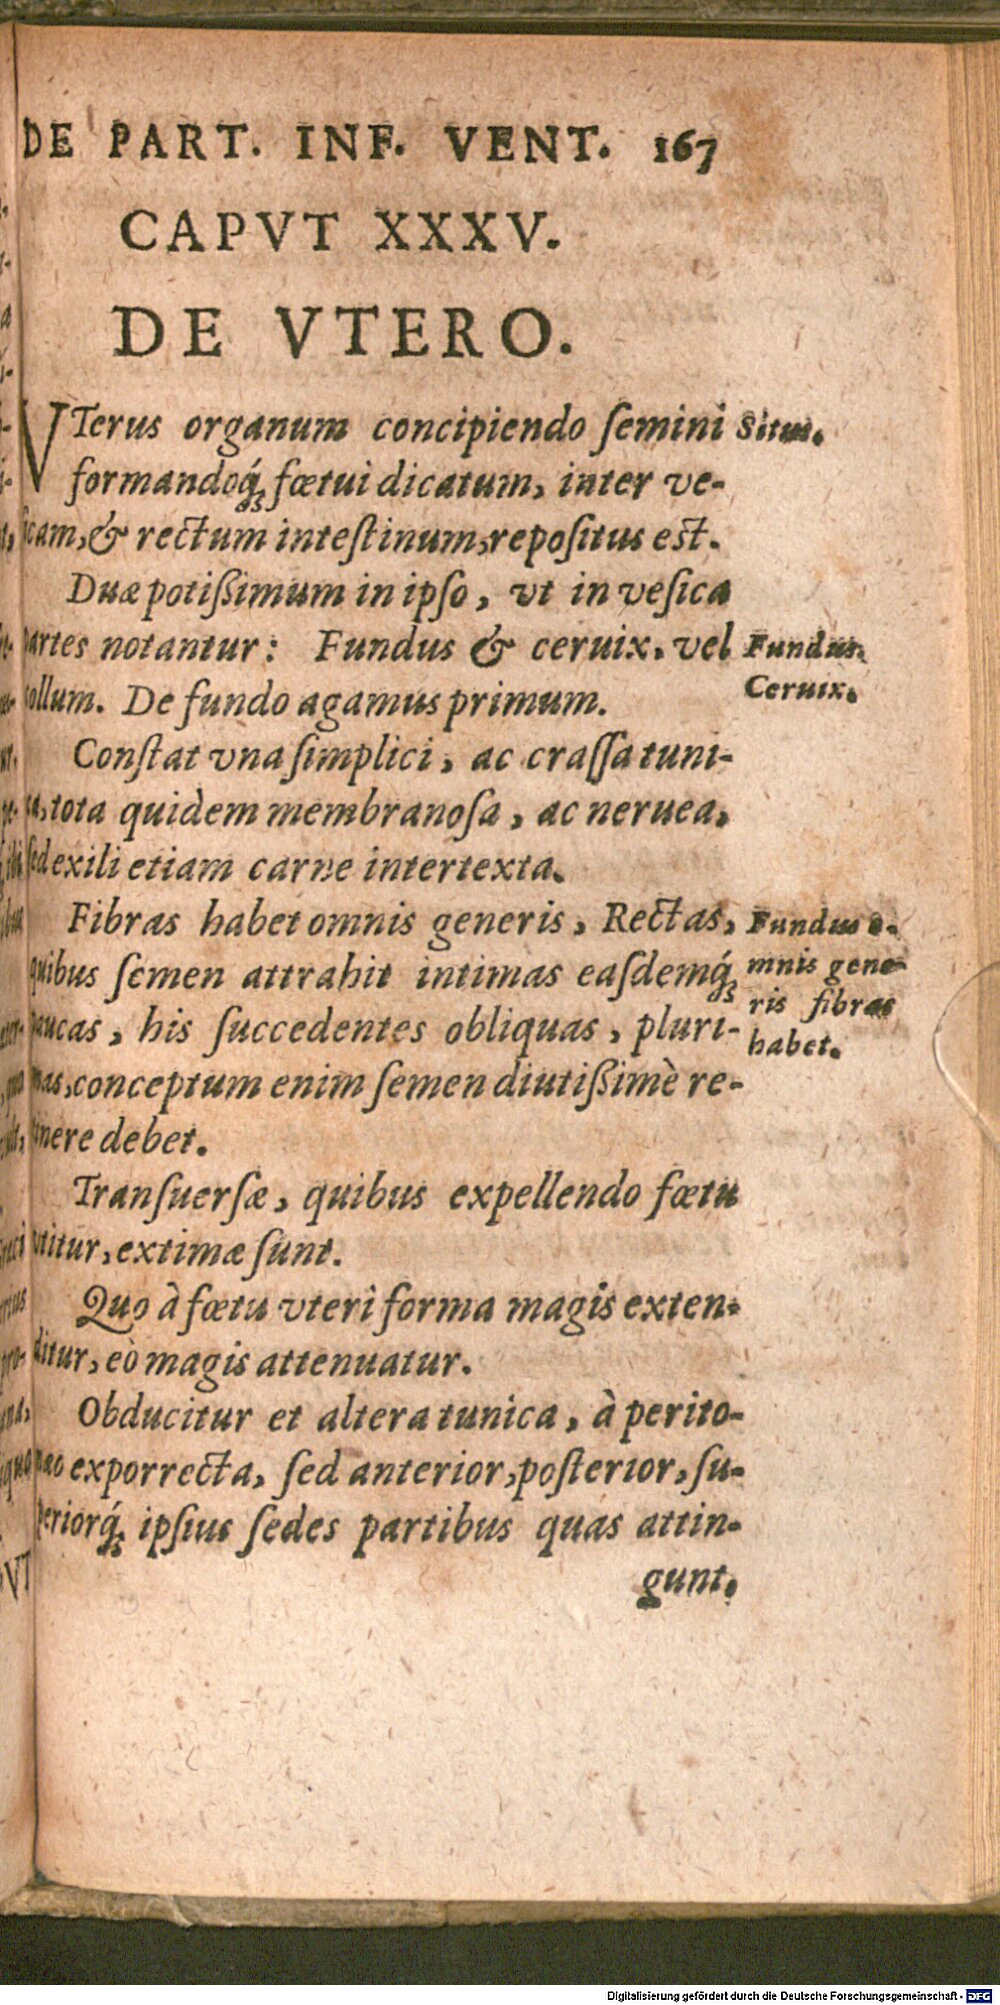 DE PART. INF. VENT. 167
CAPVT XXXV.
DE VTERO.
VTerus organum concipiendo ſemini
Situs.
formandoq́; fœtui dicatum, inter ve-
ſicam, & rectum inteſtinum, repoſitus est.
Duæ potiſsimum in ipſo, vt in veſica
partes notantur: Fundus & ceruix. vel
Fundus.
collum. De fundo agamus primum.
Ceruix.
Conſtat vna ſimplici, ac craſſa tuni-
ca, tota quidem membranoſa, ac neruea,
ſed exili etiam carne intertexta.
Fibras habet omnis generis, Rectas,
Fundus o-
quibus ſemen attrahit intimas eaſdemq́;
mnis gene-
ris fibras
paucas, his ſuccedentes obliquas, pluri-
habet.
mas, conceptum enim ſemen diutiſsimè re-
tinere debet.
Tranſuerſæ, quibus expellendo fœtu
vtitur, extimæ ſunt.
Quo à fœtu vteri forma magis exten-
ditur, eò magis attenuatur.
Obducitur et altera tunica, à perito-
næo exporrecta, ſed anterior, poſterior, ſu-
periorq́; ipſius ſedes partibus quas attin-
gunt,
Digitalisierung gefördert durch die Deutsche Forschungsgemeinschaft - DFG